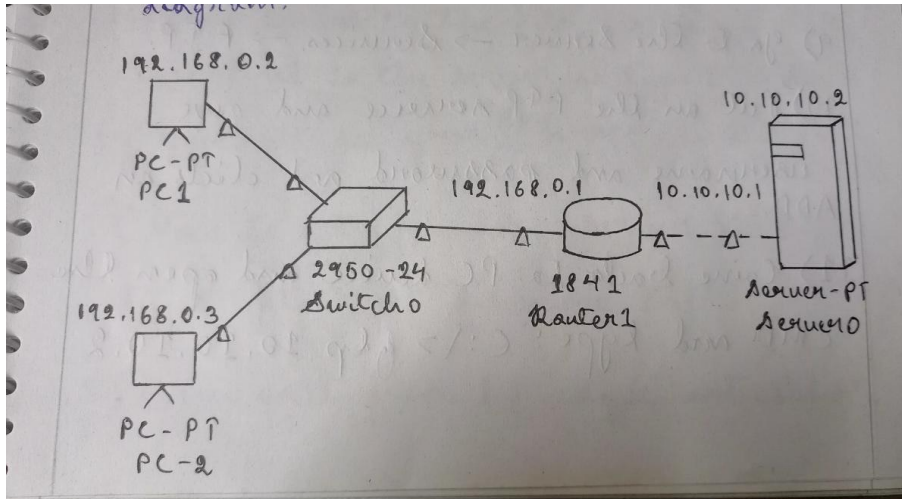 diagram.
192.168.0.2
PC-PT
PC1
192.168.0.3
PC-PT
PC-2
2950-24
Switch0
192.168.0.1
1841
Router1
10.10.10.1
10.10.10.2
Server-PT
Server0